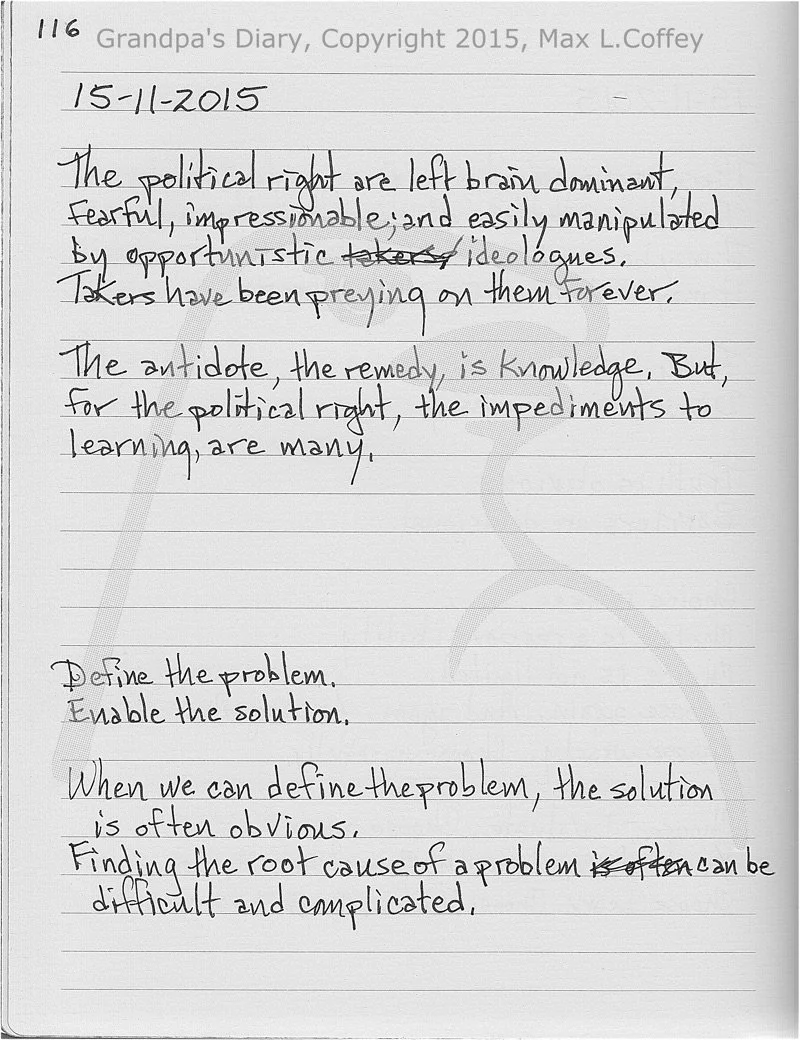 116
Grandpa's Diary, Copyright 2015, Max L.Coffey
15-11-2015
The political right are left brain dominant,
fearful, impressionable; and easily manipulated
by opportunistic takers, ideologues.
Takers have been preying on them forever.
The antidote, the remedy, is knowledge. But,
for the political right, the impediments to
learning, are many.
Define the problem.
Enable the solution.
When we can define the problem, the solution
is often obvious.
Finding the root cause of a problem is often can be
difficult and complicated.